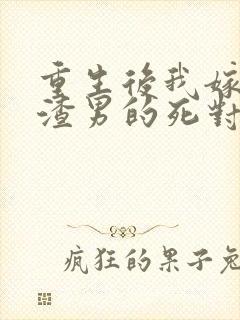 重生後我嫁
渣男的死對
疯狂的果子兔